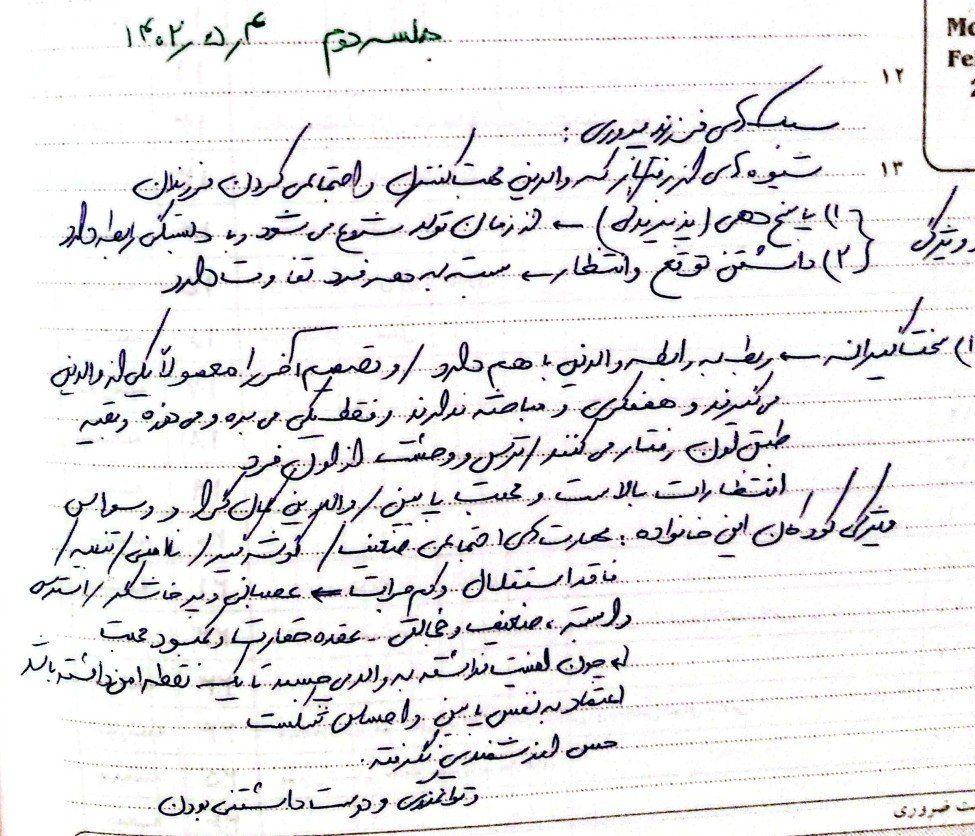 جلسه دوم ۱۴۰۲٫۵٫۴
Mo
Fe
2
۱۲
سبک های فرزندپروری :
۱۳
شیوه های از رفتار که والدین جهت کنترل و اجتماعی کردن فرزندان
ویژگی
۱) پاسخ دهی (پذیرندگی) ← از زمان تولد شروع می شود و با دلبستگی رابطه دارد
۲) داشتن توقع و انتظار ← بسته به هر فرد تفاوت دارد
۱) سختگیرانه ← ربط به رابطه والدین با هم دارد / و تصمیم آخر را معمولاً یکی از والدین
می گیرند و همفکری و مباحثه ندارند و فقط یکی می بره و می دوزه و بقیه
طبق اون رفتار می کنند / ترس و وحشت از اون فرد
انتظارات بالاست و محبت پایین / والدین کمال گرا و وسواس
ویژگی کودکان این خانواده : مهارت های اجتماعی ضعیف / گوشه گیر / ناامنی / تنبیه /
فاقد استقلال و کم جرات ← عصبانی و پرخاشگر / استرس
وابسته ، ضعیف و خجالتی - عقده حقارت و کمبود محبت
چون امنیت نداشته به والدی چسبد تا یک نقطه امن داشته باشد
اعتماد به نفس پایین و احساس شکست
حس ارزشمندی نگرفته .
و توانمندی و دوست داشتنی بودن
ت ضروری